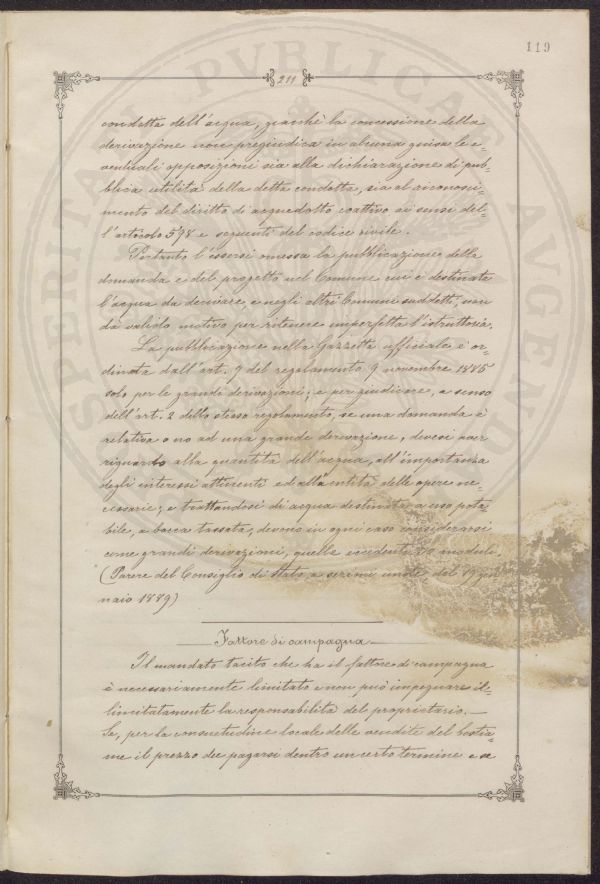 119
211
condotta dell'acqua, giacchè la concessione della
derivazione non pregiudica in alcuna guisa le e-
ventuali opposizioni sia alla dichiarazione di pub-
blica utilità della detta condotta, sia al riconosci-
mento del diritto di acquedotto coattivo ai sensi del-
l'articolo 598 e seguenti del codice civile.
Pertanto l'essersi omessa la pubblicazione della
domanda e del progetto nel Comune cui è destinata
l'acqua da derivare, e negli altri Comuni suddetti, non
dà valido motivo per ritenere imperfetta l'istruttoria.
La pubblicazione nella Gazzetta ufficiale è or-
dinata dall'art. 9 del regolamento 9 novembre 1885
solo per le grandi derivazioni; e per giudicare, a senso
dell'art. 2 dello stesso regolamento, se una domanda è
relativa o no ad una grande derivazione, devesi aver
riguardo alla quantità dell'acqua, all'importanza
degli interessi attinenti ed all'entità delle opere ne-
cessarie; e trattandosi di acqua destinata a uso pota-
bile, a bocca tassata, devono in ogni caso considerarsi
come grandi derivazioni, quelle eccedenti modulo.
(Parere del Consiglio di Stato a sezioni unite del 19 gen
naio 1889)
Fattore di campagna
Il mandato tacito che ha il fattore di campagna
è necessariamente limitato e non può impegnare il-
limitatamente la responsabilità del proprietario. —
Se, per la consuetudine locale delle vendite del bestia-
me il prezzo dee pagarsi dentro un certo termine e se
SPERITAS PVBLICAE AVGENDAE